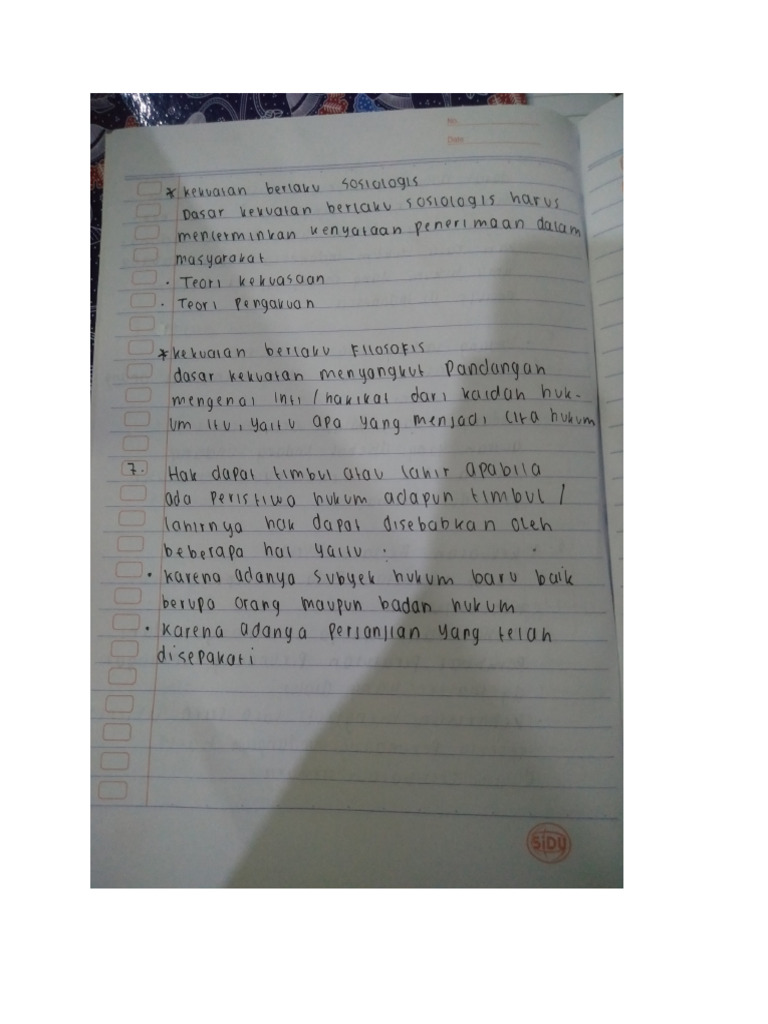 No.
Date
* kekuatan berlaku sosiologis
Dasar kekuatan berlaku sosiologis harus
mencerminkan kenyataan penerimaan dalam
masyarakat
• Teori kekuasaan
• Teori Pengakuan
* kekuatan berlaku Filosofis
dasar kekuatan menyangkut Pandangan
mengenai inti / hakikat dari kaidah huk-
um itu, yaitu apa yang menjadi cita hukum
7. Hak dapat timbul atau lahir apabila
ada peristiwa hukum adapun timbul /
lahirnya hak dapat disebabkan oleh
beberapa hal yaitu :
• karena adanya subyek hukum baru baik
berupa orang maupun badan hukum
• karena adanya perjanjian yang telah
disepakati
SiDU